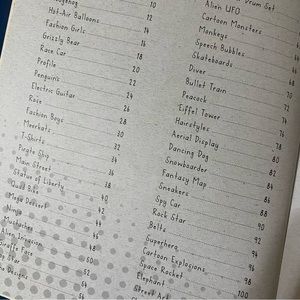 10
Hot-Air Balloons 12
Fashion Girls 14
Grizzly Bear 16
Race Car 18
Profile 20
Penguins 22
Electric Guitar 24
Rose 26
Fashion Boys 28
Meerkats 30
T-Shirts 32
Pirate Ship 34
Main Street 36
Statue of Liberty 38
Quad Bike 40
Mega Dessert 42
Ninja 44
Mustaches 46
Alien Invasion 48
Giraffe Face 50
52
Designs 54
Drum Set
Alien UFO
Cartoon Monsters
Monkeys
Speech Bubbles
Skateboards
Diver
Bullet Train
Peacock
Eiffel Tower
Hairstyles
Aerial Display
Dancing Dog
Snowboarder
Fantasy Map
Sneakers
Spy Car
Rock Star
Belts
Superhero
Cartoon Explosions
Space Rocket
Elephant
Street Art